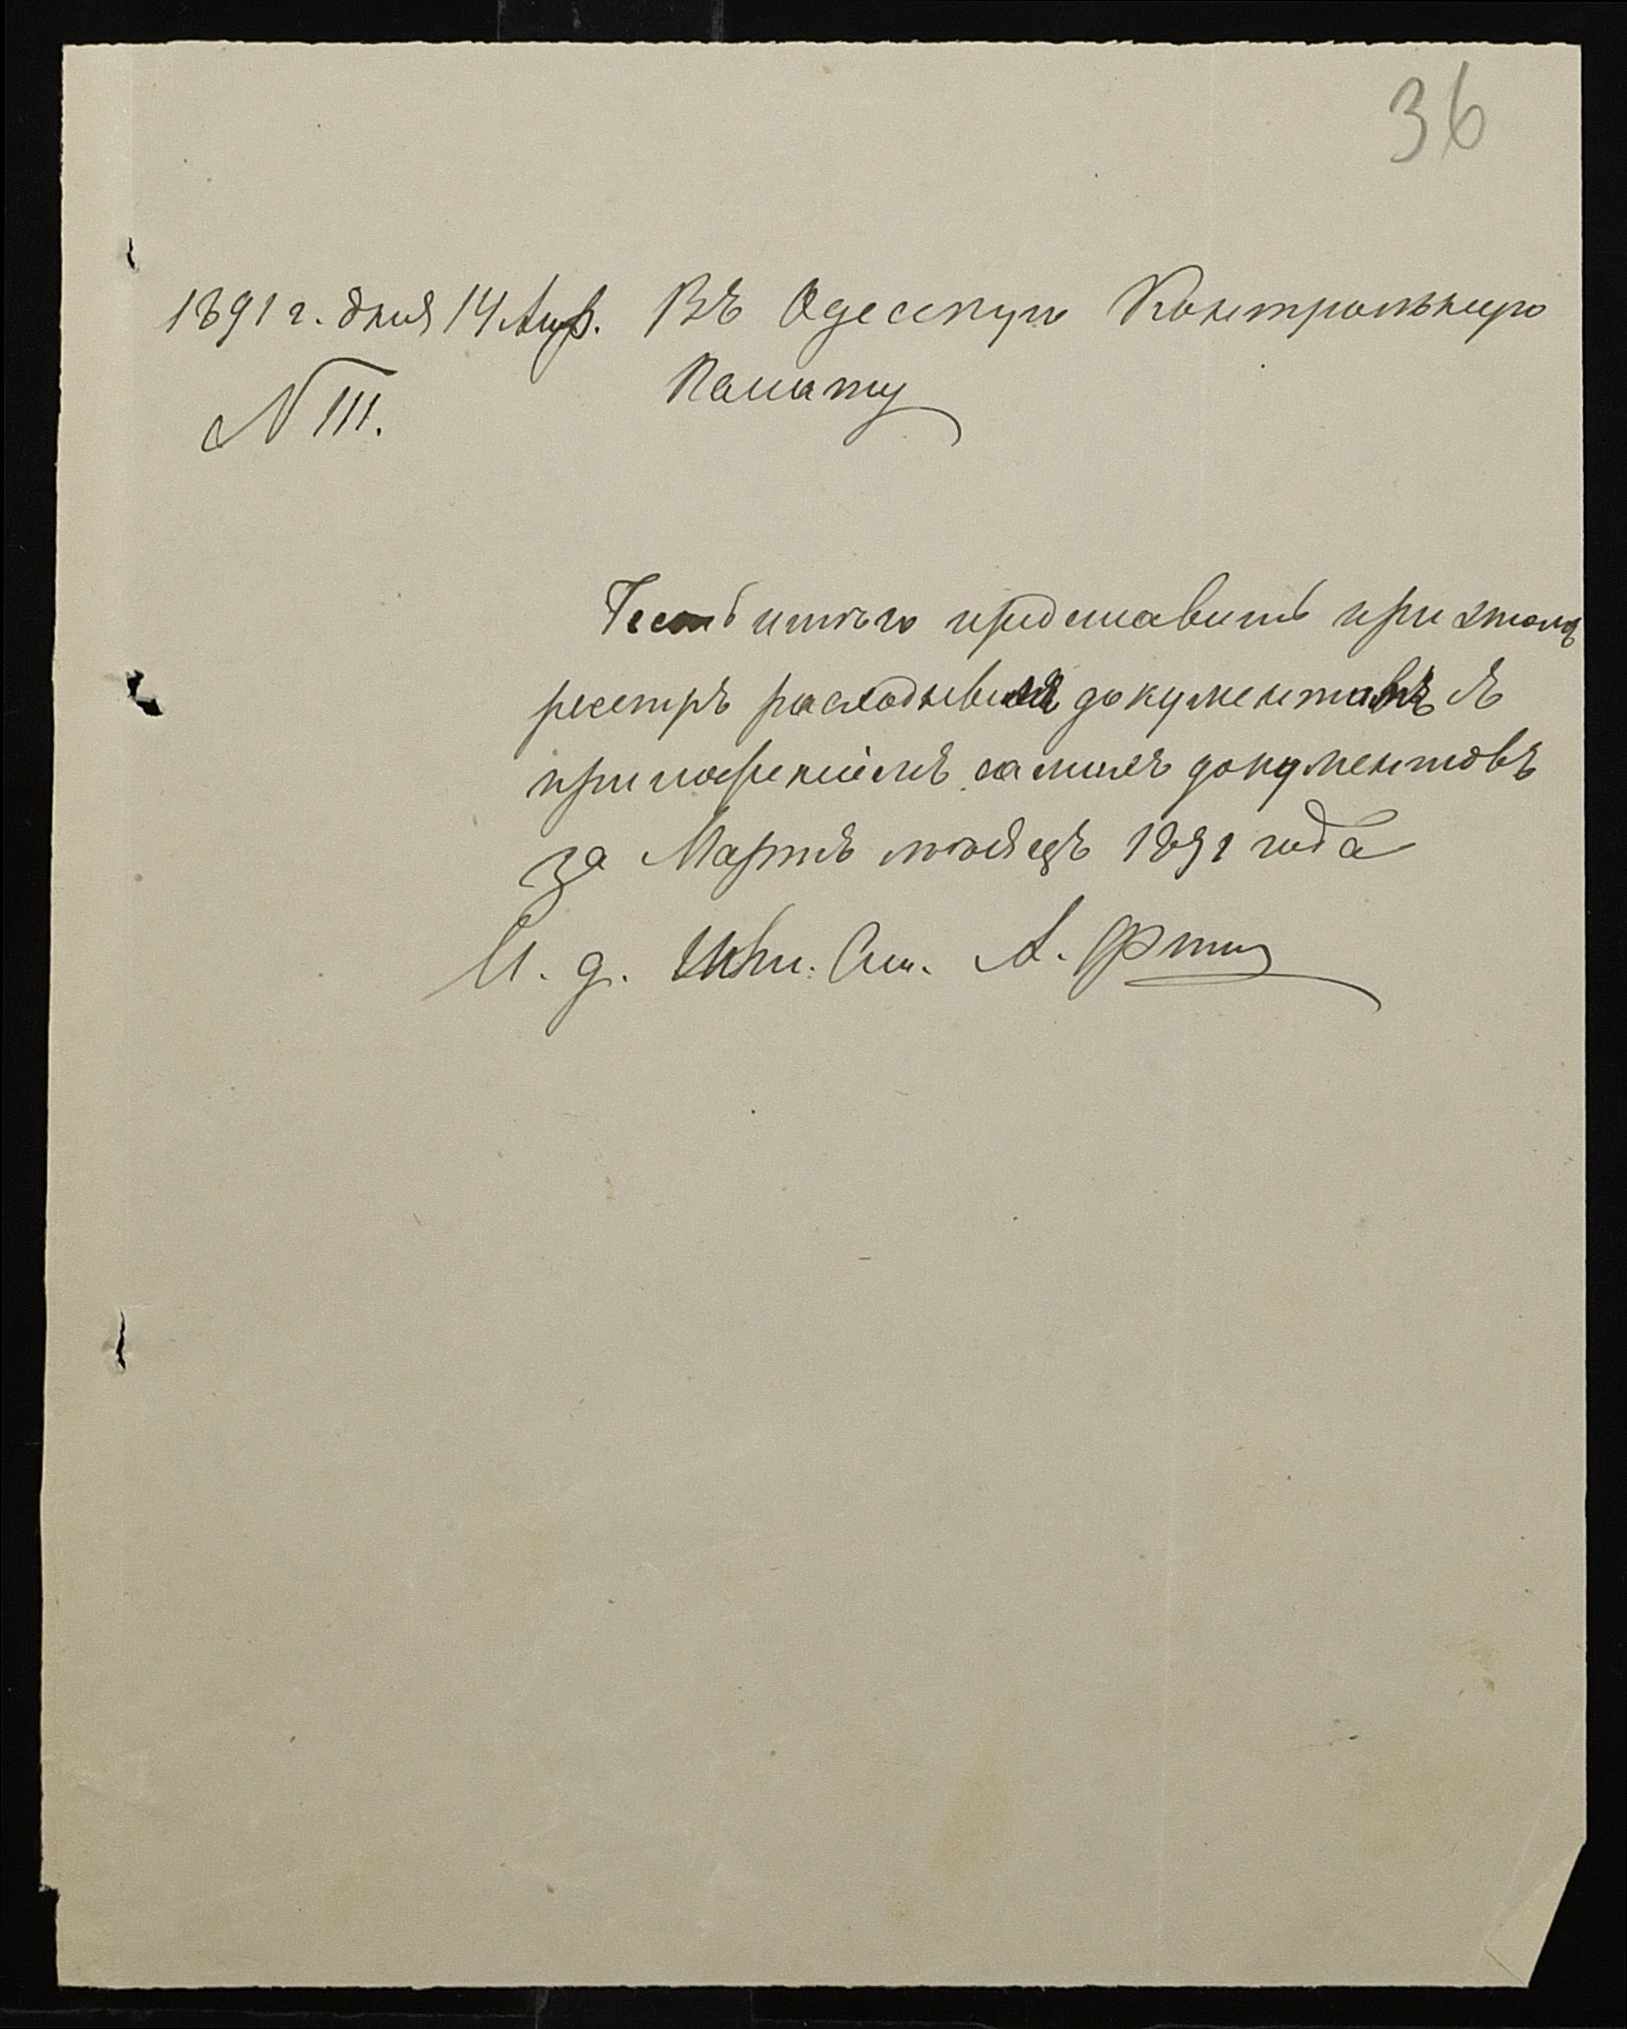 36
1891 г. дня 14 Апр. Въ Одесскую Контрольную
№ 111. Палату
Честь имѣю представить при этомъ
реестръ расходныхъ документовъ съ
приложеніемъ самихъ документовъ
за Мартъ мѣсяцъ 1891 года
И. д.